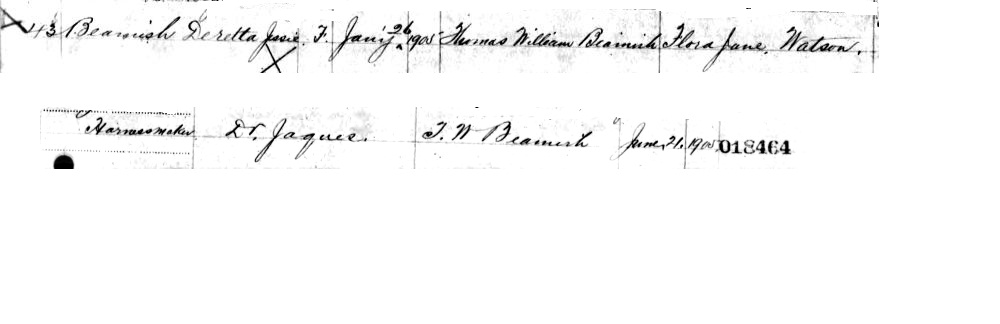 43 Beamish Deretta Jessie. F. Jan'y 26 1905 Thomas William Beamish Flora Jane. Watson.
Harnessmaker Dr. Jaques. T. W Beamish June. 21. 1905 018464